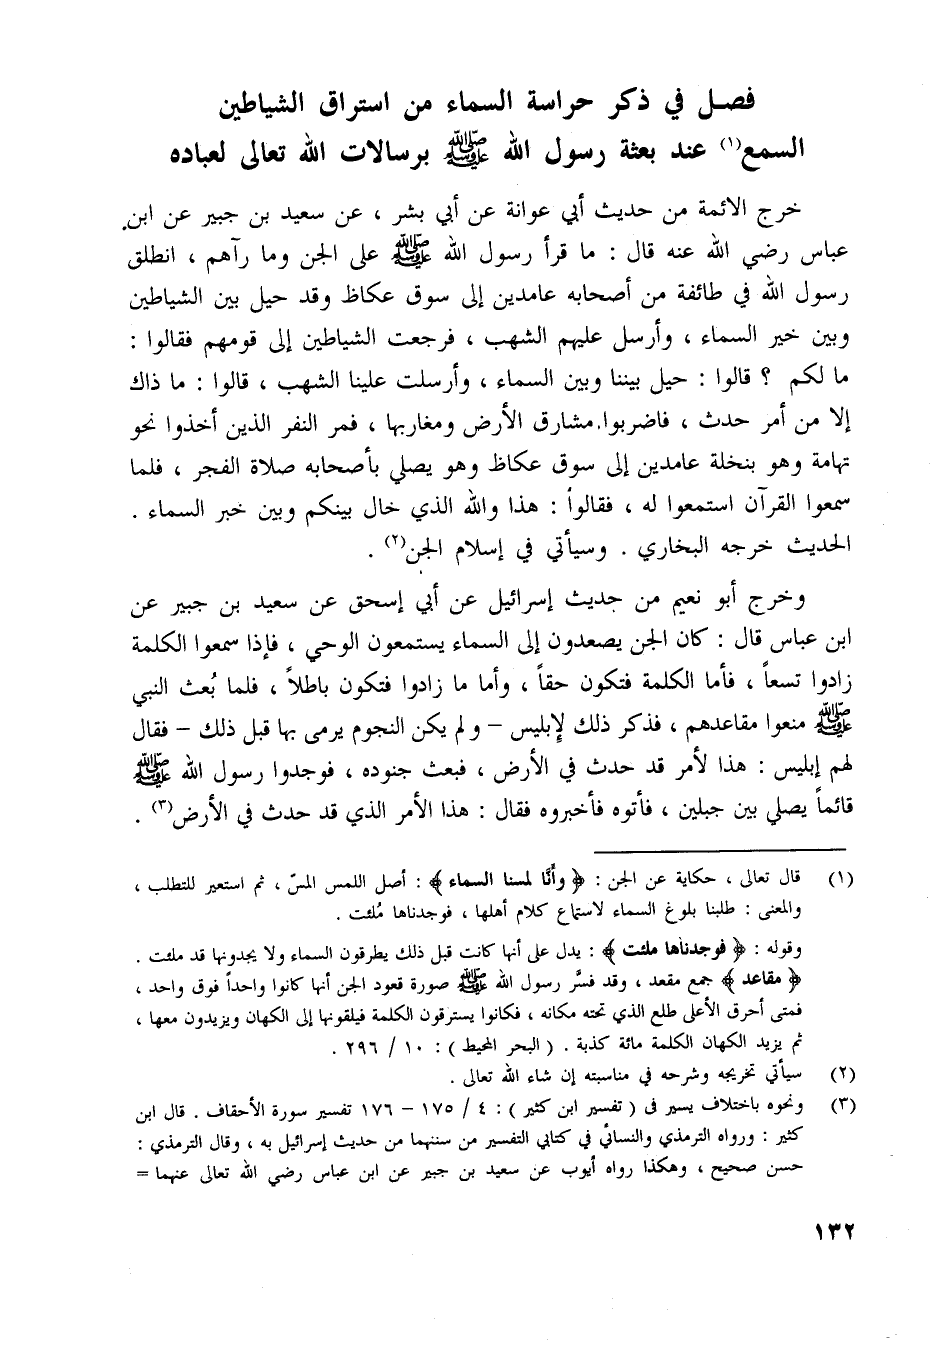 فصل في ذكر حراسة السماء من استراق الشياطين
السمع(١) عند بعثة رسول الله ﷺ برسالات الله تعالى لعباده
خرج الائمة من حديث أبي عوانة عن أبي بشر ، عن سعيد بن جبير عن ابن
عباس رضي الله عنه قال : ما قرأ رسول الله ﷺ على الجن وما رآهم ، انطلق
رسول الله في طائفة من أصحابه عامدين إلى سوق عكاظ وقد حيل بين الشياطين
وبين خبر السماء ، وأرسل عليهم الشهب ، فرجعت الشياطين إلى قومهم فقالوا :
ما لكم ؟ قالوا : حيل بيننا وبين السماء ، وأرسلت علينا الشهب ، قالوا : ما ذاك
إلا من أمر حدث ، فاضربوا مشارق الأرض ومغاربها ، فمر النفر الذين أخذوا نحو
تهامة وهو بنخلة عامدين إلى سوق عكاظ وهو يصلي بأصحابه صلاة الفجر ، فلما
سمعوا القرآن استمعوا له ، فقالوا : هذا والله الذي خال بينكم وبين خبر السماء .
الحديث خرجه البخاري . وسيأتي في إسلام الجن(٢) .
وخرج أبو نعيم من حديث إسرائيل عن أبي إسحق عن سعيد بن جبير عن
ابن عباس قال : كان الجن يصعدون إلى السماء يستمعون الوحي ، فإذا سمعوا الكلمة
زادوا تسعاً ، فأما الكلمة فتكون حقاً ، وأما ما زادوا فتكون باطلاً ، فلما بُعث النبي
ﷺ منعوا مقاعدهم ، فذكر ذلك لإبليس – ولم يكن النجوم يرمى بها قبل ذلك – فقال
لهم إبليس : هذا لأمر قد حدث في الأرض ، فبعث جنوده ، فوجدوا رسول الله ﷺ
قائماً يصلي بين جبلين ، فأتوه فأخبروه فقال : هذا الأمر الذي قد حدث في الأرض(٣) .
(١) قال تعالى ، حكاية عن الجن : ﴿ وأَنَّا لمسنا السماء ﴾ : أصل اللمس المسّ ، ثم استعير للتطلب ،
والمعنى : طلبنا بلوغ السماء لاستماع كلام أهلها ، فوجدناها مُلئت .
وقوله : ﴿ فوجدناها ملئت ﴾ : يدل على أنها كانت قبل ذلك يطرقون السماء ولا يجدونها قد ملئت .
﴿ مقاعد ﴾ جمع مقعد ، وقد فسَّر رسول الله ﷺ صورة قعود الجن أنها كانوا واحداً فوق واحد ،
فمتى أحرق الأعلى طلع الذي تحته مكانه ، فكانوا يسترقون الكلمة فيلقونها إلى الكهان ويزيدون معها ،
ثم يزيد الكهان الكلمة مائة كذبة . ( البحر المحيط ) : ١٠ / ٢٩٦ .
(٢) سيأتي تخريجه وشرحه في مناسبته إن شاء الله تعالى .
(٣) ونحوه باختلاف يسير فى ( تفسير ابن كثير ) : ٤ / ١٧٥ – ١٧٦ تفسير سورة الأحقاف . قال ابن
كثير : ورواه الترمذي والنسائي في كتابي التفسير من سننهما من حديث إسرائيل به ، وقال الترمذي :
حسن صحيح ، وهكذا رواه أيوب عن سعيد بن جبير عن ابن عباس رضي الله تعالى عنهما =
١٣٢